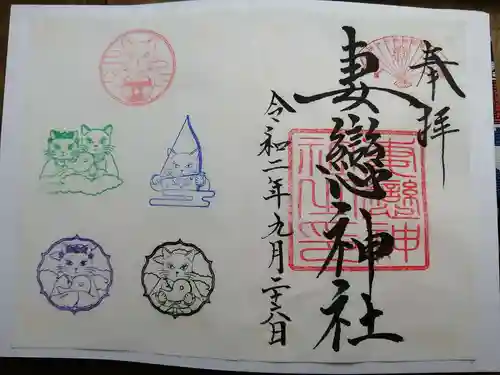 奉拝
妻戀神社
令和二年九月二十六日
妻戀神
社之印